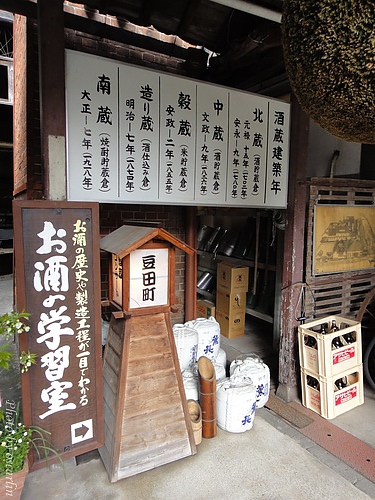 酒蔵建築年
北蔵（酒貯蔵倉）
元禄十五年（一七〇二）
安永九年（一七八〇）
中蔵（酒貯蔵倉）
文政九年（一八二六年）
穀蔵（米貯蔵倉）
安政二年（一八五五年）
造り蔵（酒仕込み倉）
明治七年（一八七四年）
南蔵（焼酎貯蔵倉）
大正七年（一九一八年）
お酒の歴史や製造工程が一目でわかる
お酒の学習室
豆田町